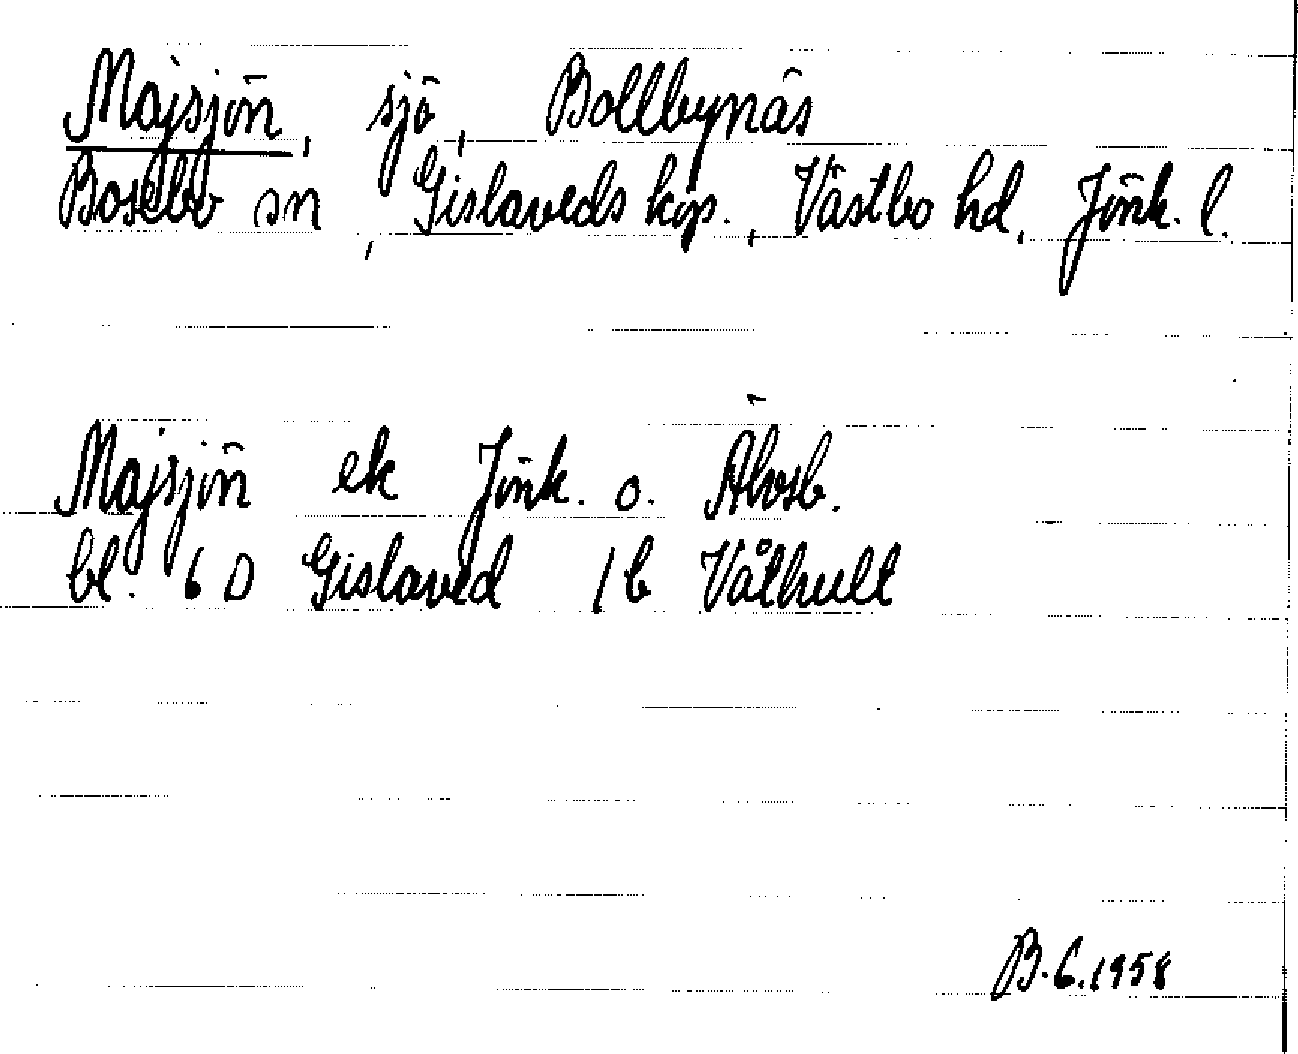 Majsjön, sjö, Bollbynäs
Bosebo sn, Gislaveds köp., Västbo hd, Jönk. l.
Majsjön ek Jönk. o. Älvsb.
bl. 6 D Gislaved 1 b Våthult
B.G.1958